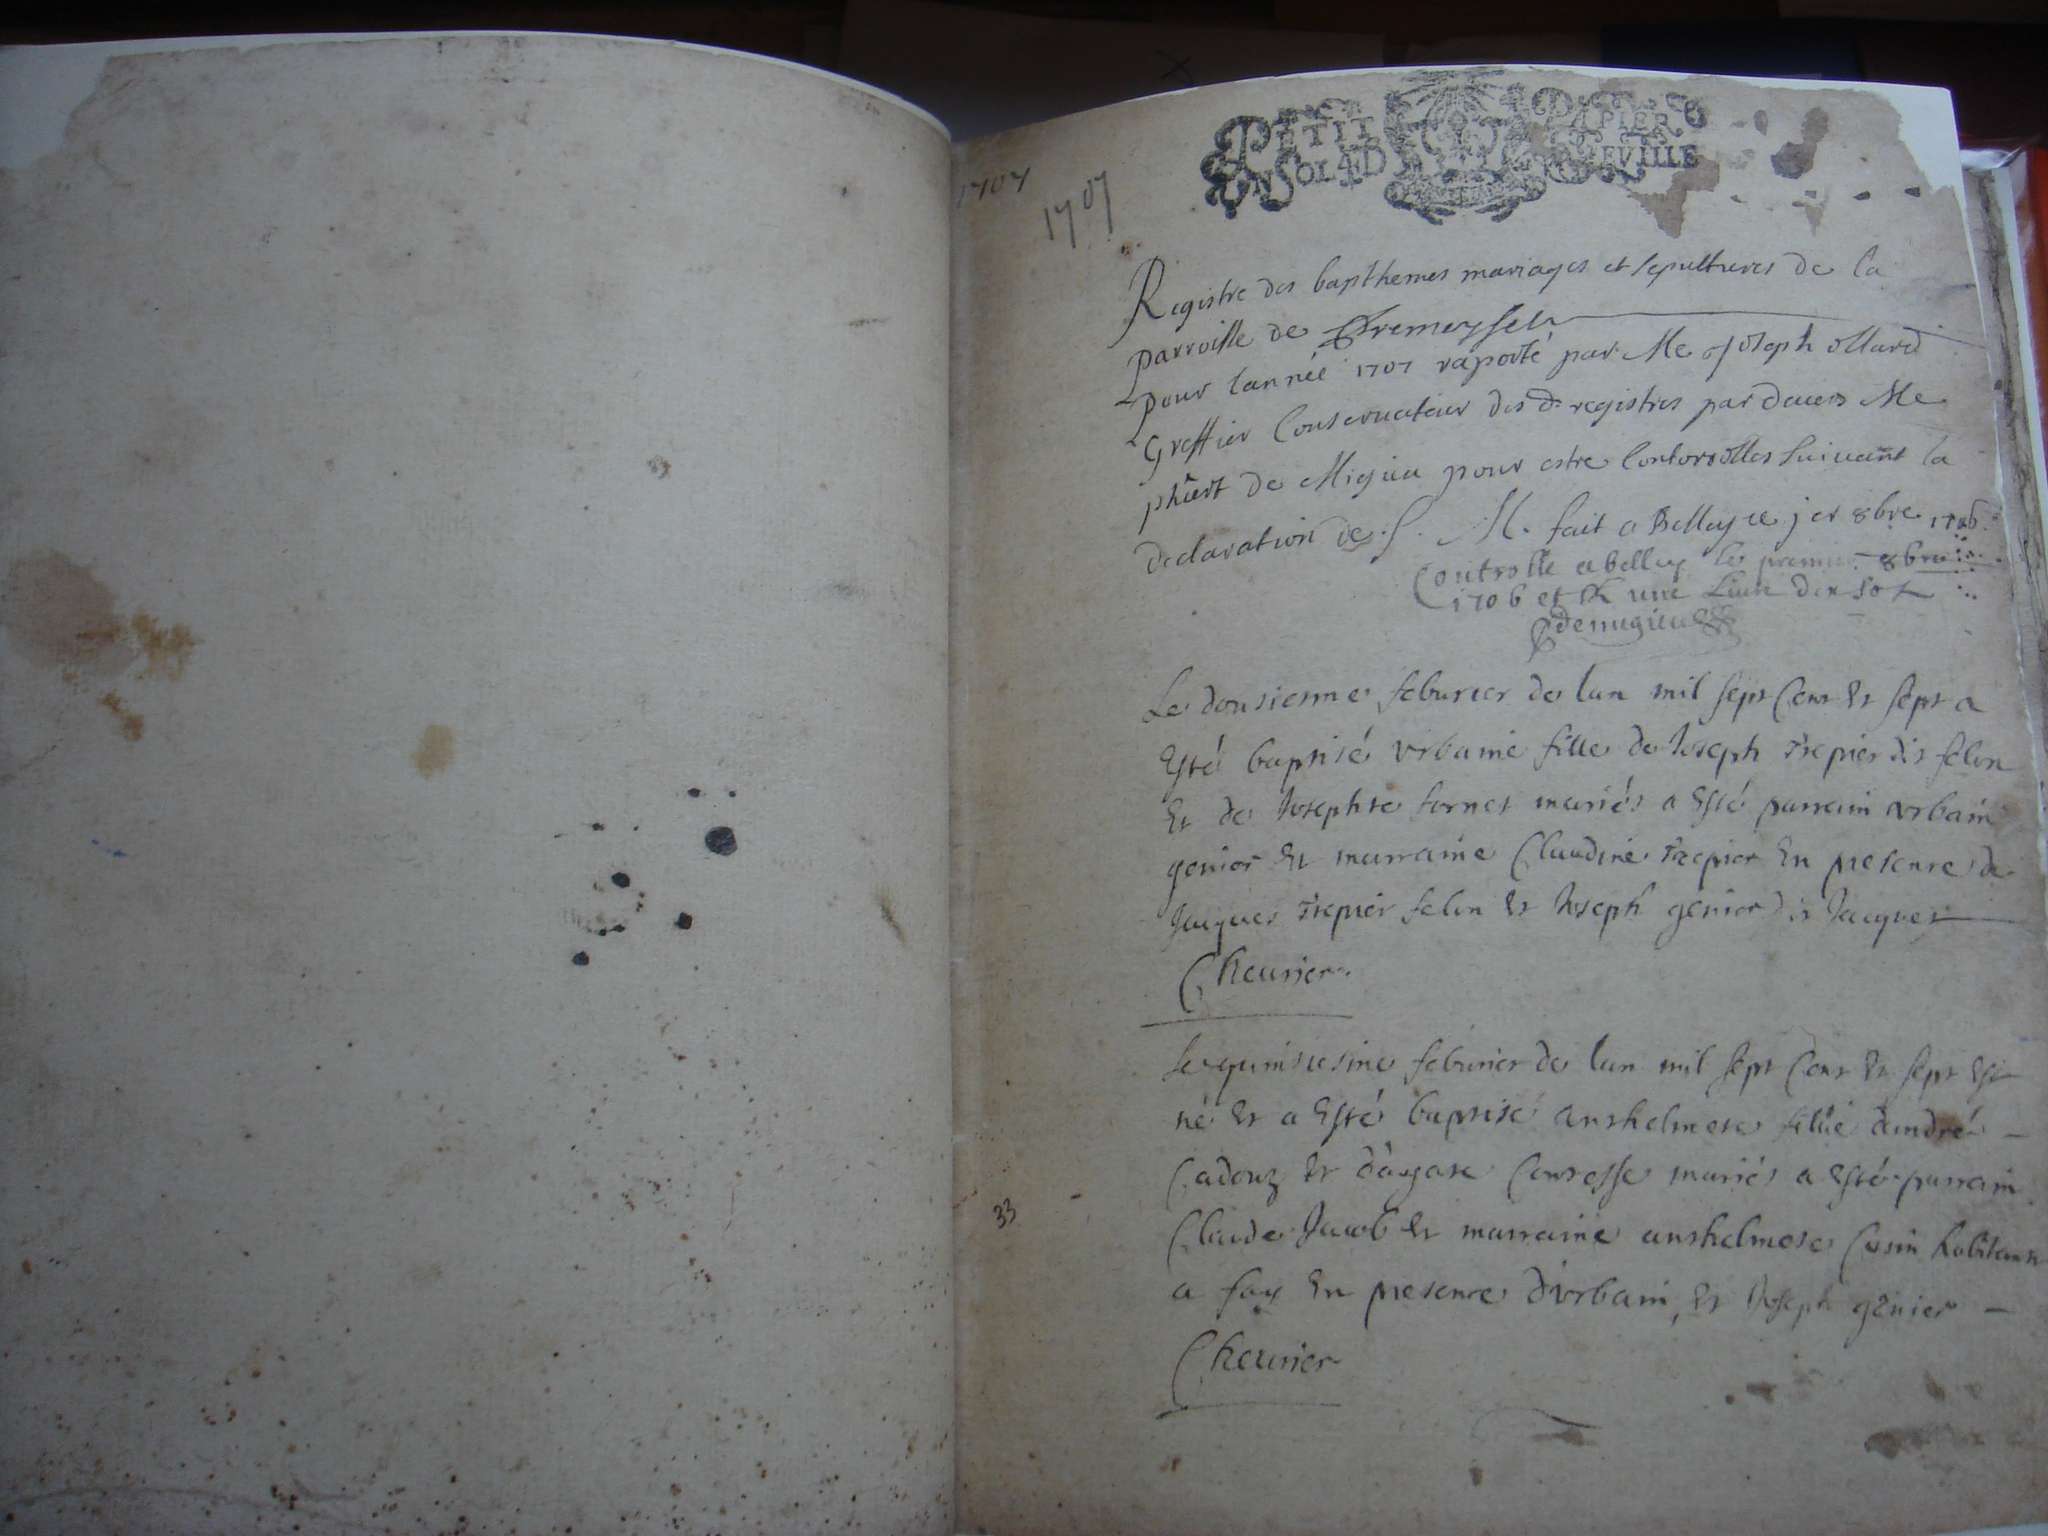 1707
1707
PETIT PAPIER
UN SOL 4 D
Registre des bapthemes mariages et sepultures de la
parroisse de Tremeysel
pour lannéé 1707 raporté par Me Joseph ollard
Greffier Conservateur des d. registres par devers Me
de Migieu pour estre Controolles suivant la
declaration de S. M. fait a Belley ce jer 8bre 1706
Controlle a belley le premier 8bre
1706 et R une Livre dix sol
demigieu
Le dousiesme feburier de lan mil sept Cent Et sept a
Esté baptisé Urbaine fille de Joseph trepier dit felon
Et de Josephte fornet mariés a Esté parrain Urbain
genier Et marraine Claudine trepier En presence de
Jacques trepier felon Et Joseph genier dit Jacques
Cheurier
Le quinsiesme feburier de lan mil sept Cent Et sept Est
né Et a Esté baptisé anthelmete fillie d'andré
Cadoux Et d'agate mariés a Esté parrain
Claude Jacob Et marraine anthelmete Cosin habitante
33
a fay En presence d'Urbain, Et Joseph génier
Cheurier